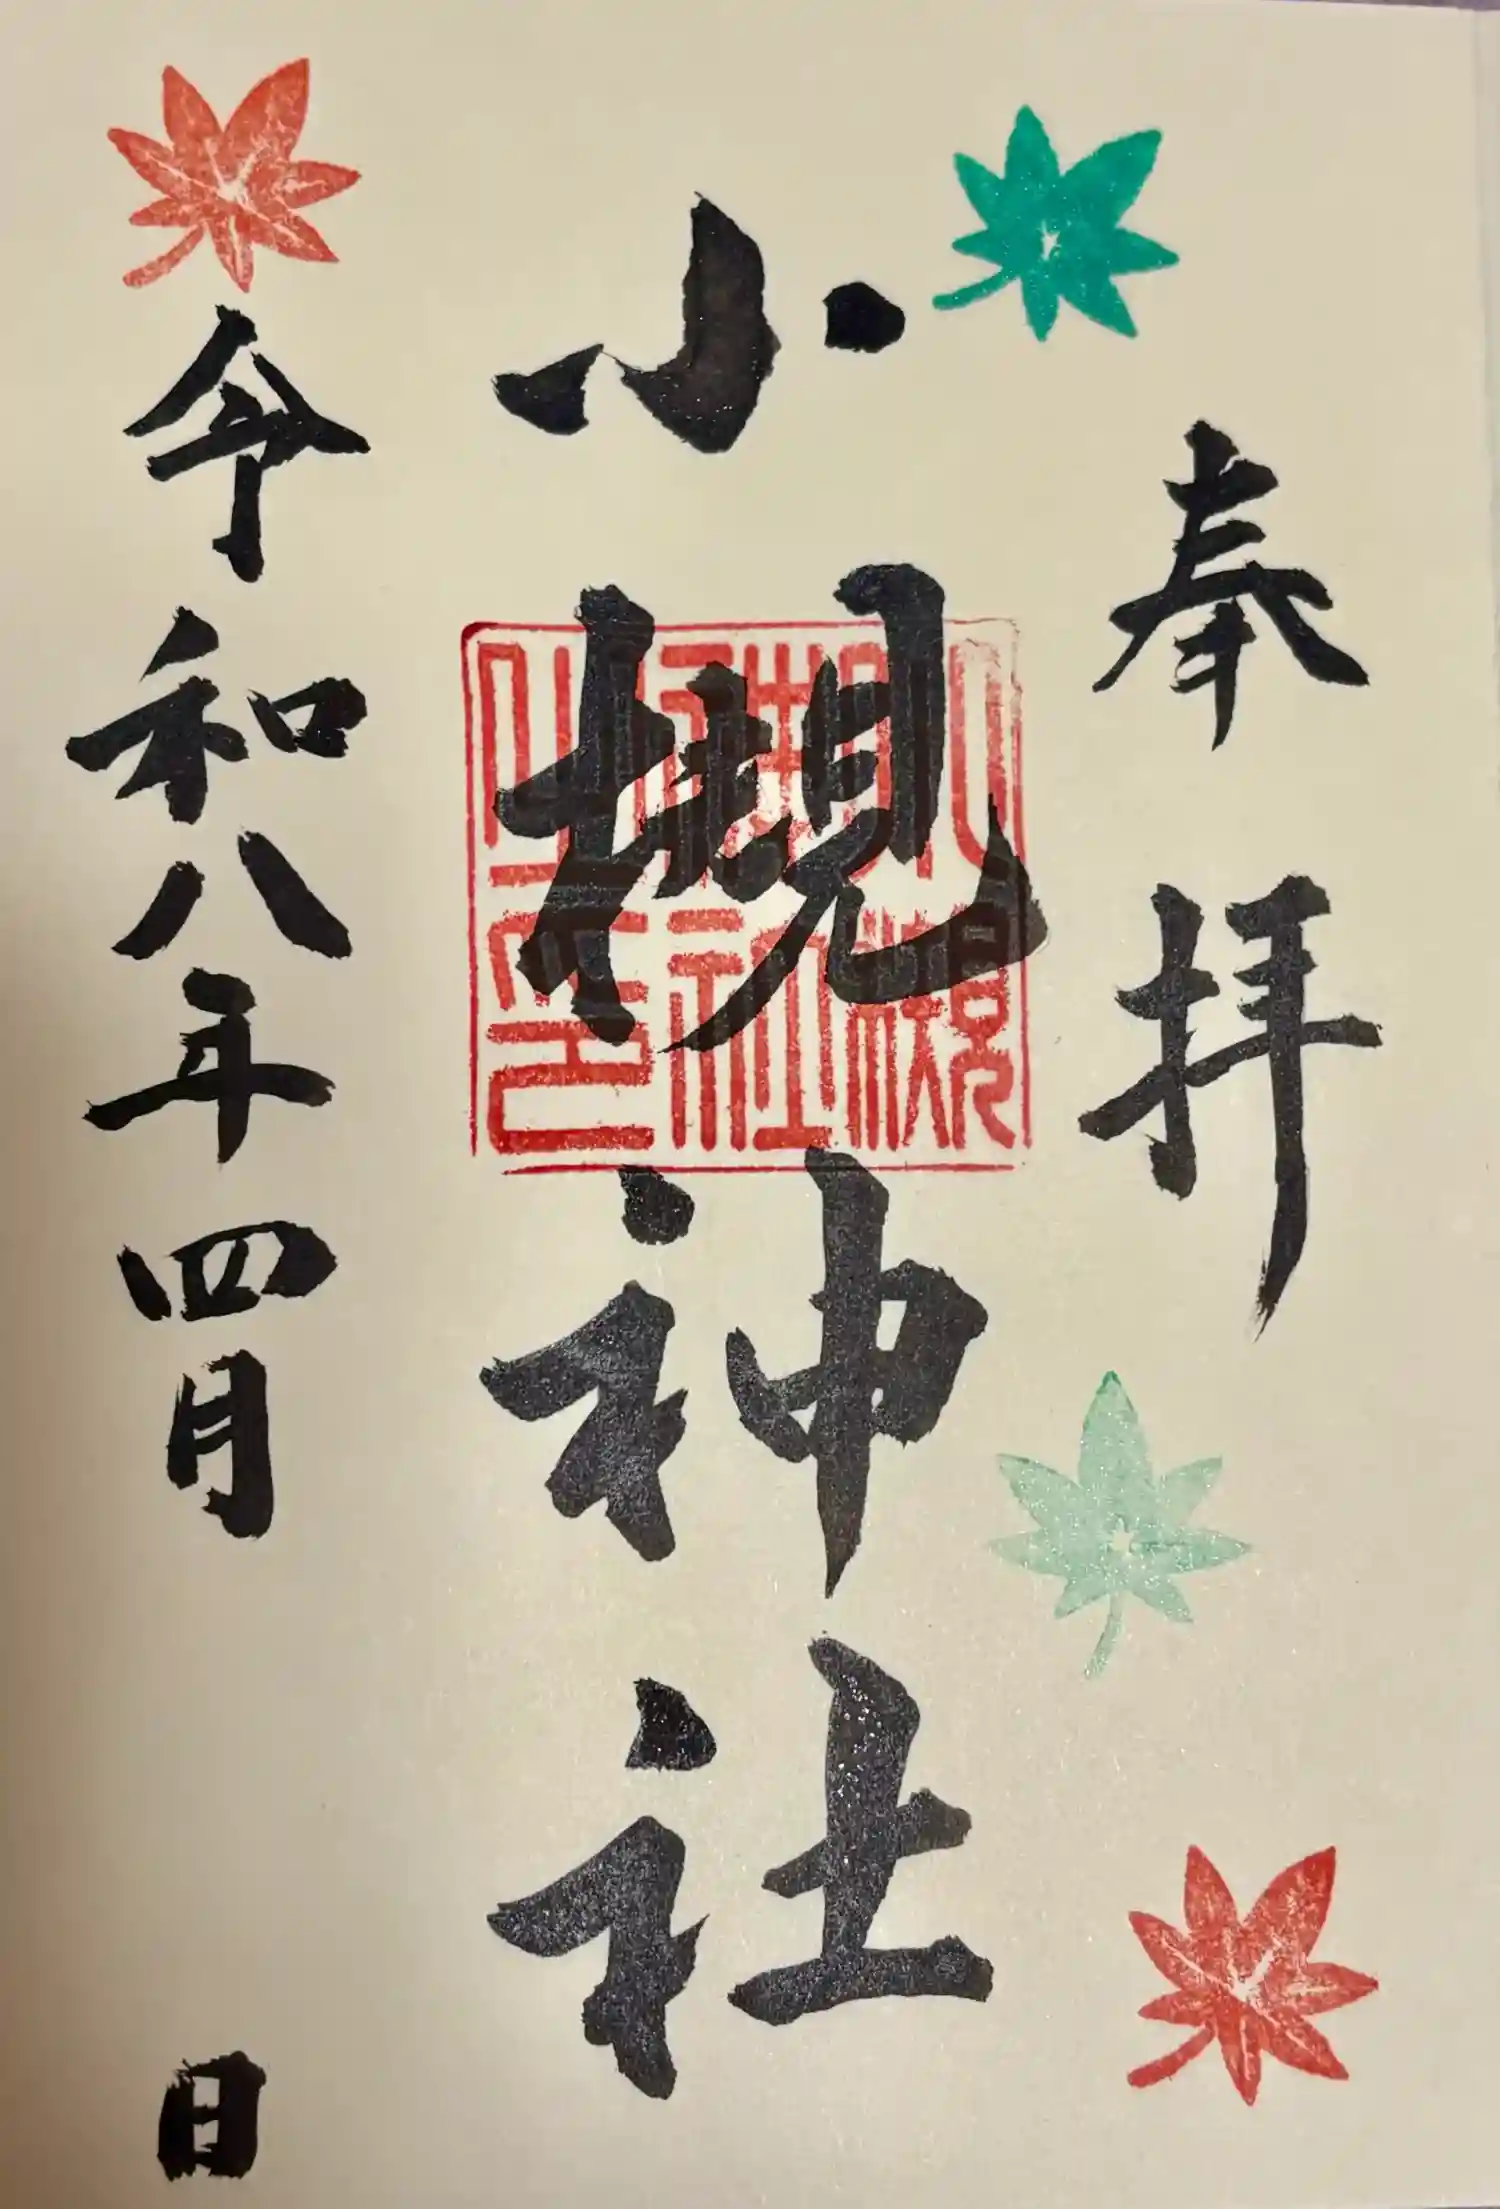 奉拝
小槻神社
令和八年四月 日
小槻
神社
之印